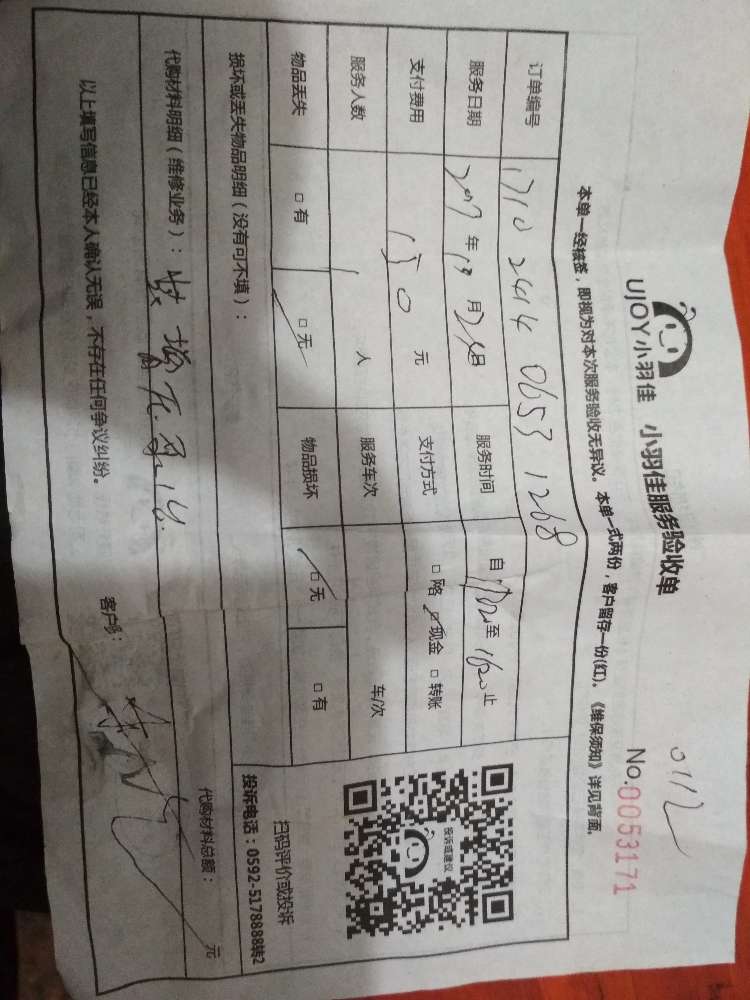 0112
UJOY小羽佳 小羽佳服务验收单 No.0053171
本单一经核签，即视为对本次服务验收无异议。本单一式两份，客户留存一份(红)。《维保须知》详见背面。
订单编号 1710 2414 0653 1268
服务日期 2017年10月24日 服务时间 自 至 止
支付费用 150元 支付方式 □网络 □现金 □转账
服务人数 1人 服务车次 车/次
物品丢失 □有 □无 物品损坏 □无 □有
损坏或丢失物品明细（没有可不填）：
代购材料明细（维修业务）： 代购材料总额： 元
以上填写信息已经本人确认无误，不存在任何争议纠纷。 客户
投诉或建议
扫码评价或投诉
投诉电话：0592-5178888转2